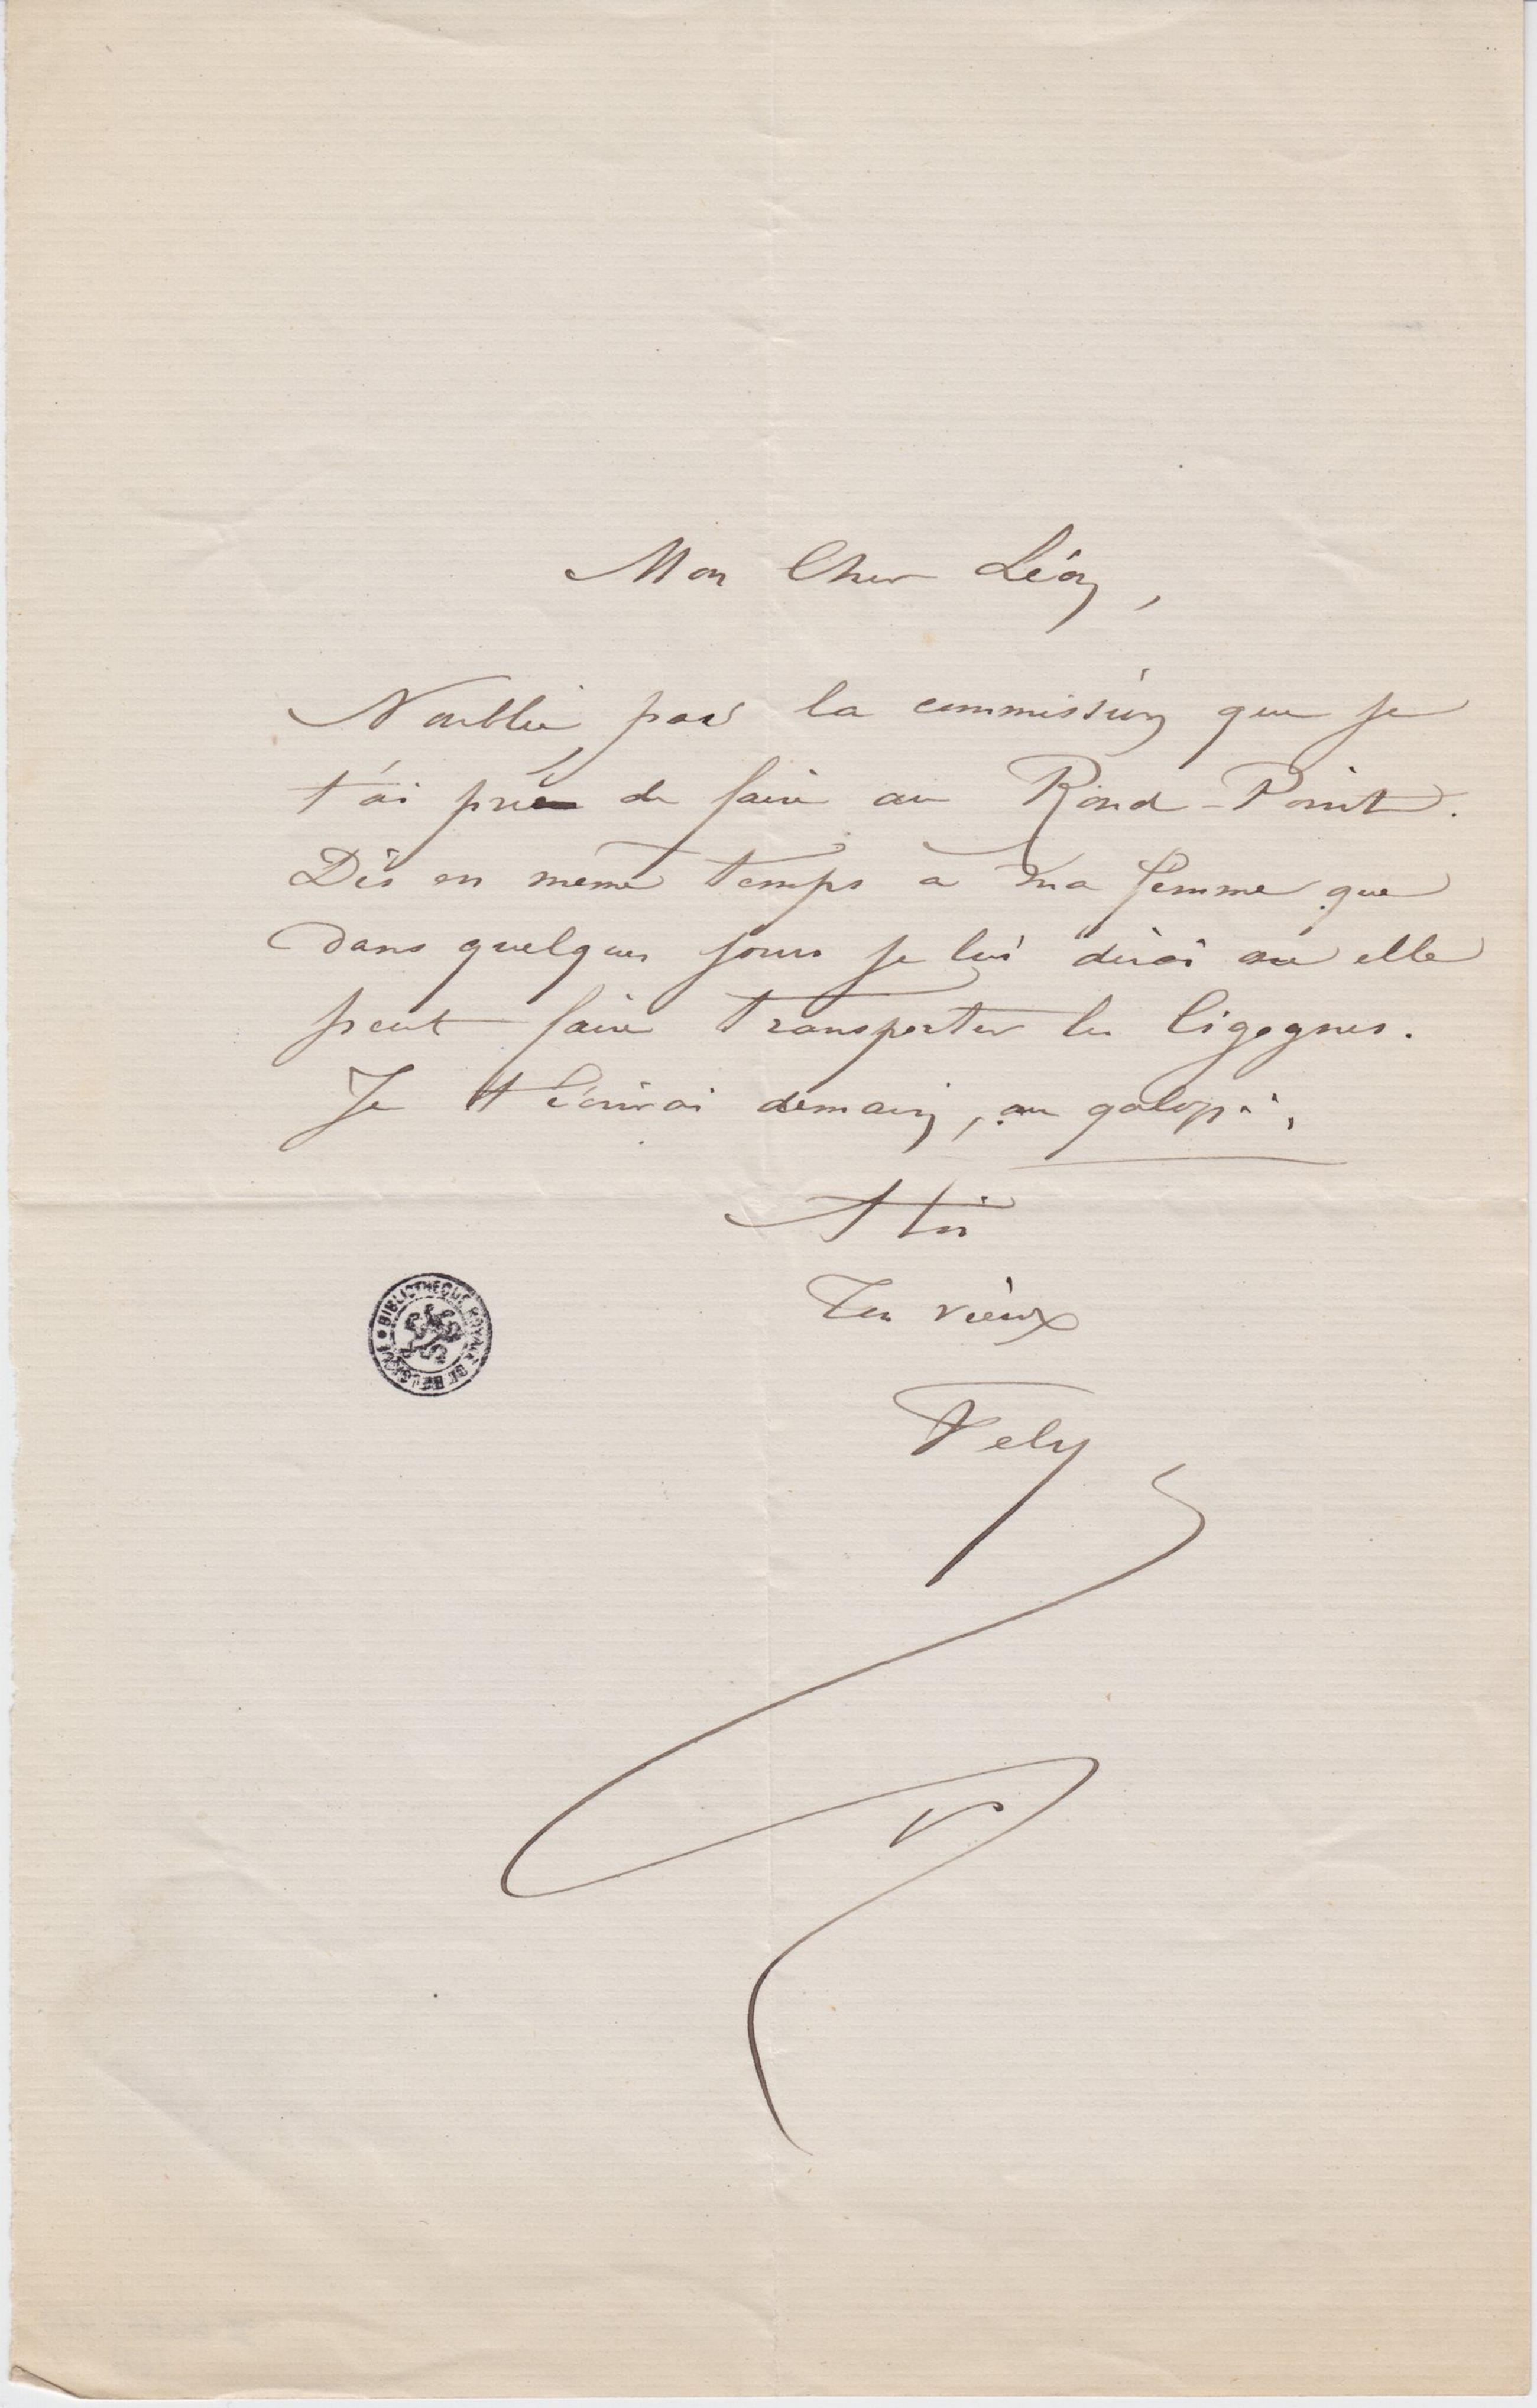 Mon Cher Léon,
N'oublie pas la commission que je
t'ai prié de faire au Rond-Point.
Dis en même temps à ma femme que
dans quelques jours je lui dirai où elle
peut faire transporter les Cigognes.
Je t'écrirai demain, au galop.
A toi
Ton vieux
Fely
BIBLIOTHEQUE ROYALE DE BELGIQUE